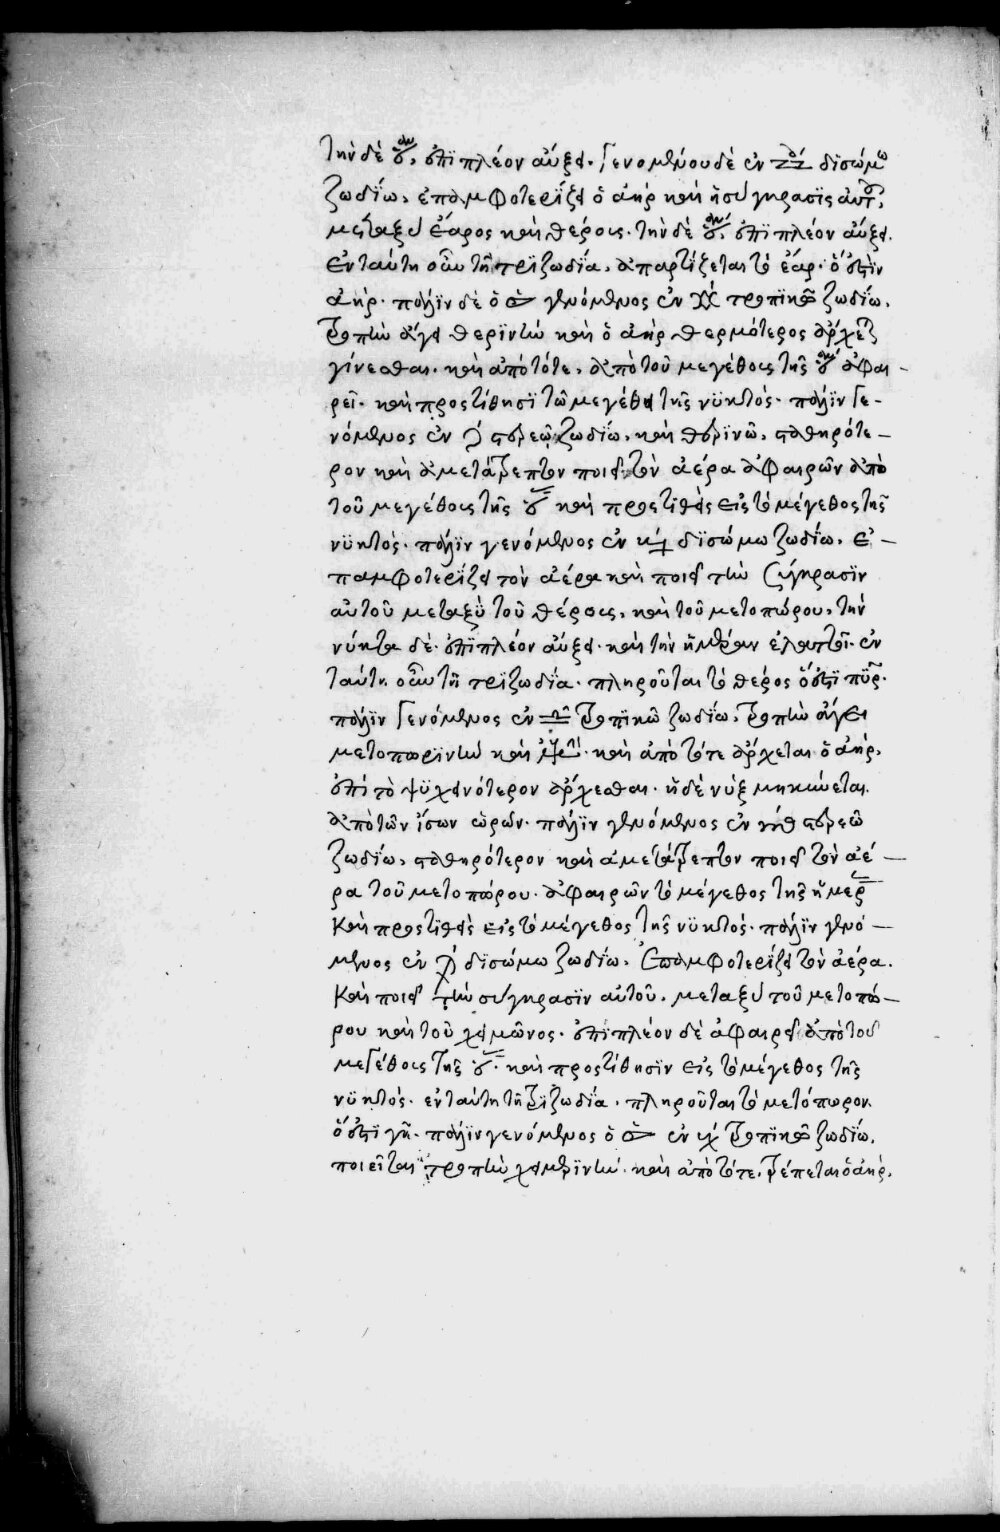 τὴν δὲ ἐπὶ πλέον αὔξει. Γενομένου δὲ ἐν δισώμω
ζωδίω, ἐπαμφοτερίζει ὁ ἀὴρ καὶ ἡ σύγκρασις αὐτοῦ,
μεταξὺ ἔαρος καὶ θέρους. τὴν δὲ ἐπὶ πλέον αὔξει.
ἐν ταύτη οὖν τῆ τριζωδία, ἀπαρτίζεται τὸ ἔαρ. ὅ ἐστὶν
ἀήρ. πάλιν δὲ ὁ γενόμενος ἐν τροπικῶ ζωδίω,
τροπὴν ἄγει θερινὴν καὶ ὁ ἀὴρ θερμότερος ἄρχεται
γίνεσθαι. καὶ ἀπὸ τότε, ἀπὸ τοῦ μεγέθους τῆς ἀφαι-
ρεῖ. καὶ προστίθησι τῶ μεγέθει τῆς νυκτός. πάλιν Γε-
νόμενος ἐν στερεῶ ζωδίω, καὶ θερινῶ, σταθηρότε-
ρον καὶ ἀμετάτρεπτον ποιεῖ τὸν ἀέρα ἀφαιρῶν ἀπὸ
τοῦ μεγέθους τῆς καὶ προστιθεὶς εἰς τὸ μέγεθος τῆς
νυκτός. πάλιν γενόμενος ἐν δισώμω ζωδίω. ἐ-
παμφοτερίζει τὸν ἀέρα καὶ ποιεῖ τὴν σύγκρασιν
αὐτοῦ μεταξὺ τοῦ θέρους, καὶ τοῦ μετοπώρου, τὴν
νύκτα δὲ ἐπὶ πλέον αὔξει. καὶ τὴν ἡμέραν ἐλαττοῖ. ἐν
ταύτη οὖν τῆ τριζωδία. πληροῦται τὸ θέρος ὅ ἐστι πῦρ.
πάλιν Γενόμενος ἐν τροπικῶ ζωδίω, τροπὴν ἄγει
μετοπωρινὴν καὶ καὶ ἀπὸ τότε ἄρχεται ὁ ἀὴρ,
ἐπὶ τὸ ψυχεινότερον ἄρχεσθαι. ἡ δὲ νὺξ μηκύνεται
ἀπὸ τῶν ἴσων ὡρῶν. πάλιν γενόμενος ἐν στερεῶ
ζωδίω, σταθηρότερον καὶ ἀμετάτρεπτον ποιεῖ τὸν ἀέ-
ρα τοῦ μετοπώρου. ἀφαιρῶν τὸ μέγεθος τῆς ἡμέρ
Καὶ προστιθεὶς εἰς τὸ μέγεθος τῆς νυκτός. πάλιν γενό-
μενος ἐν δισώμω ζωδίω. ἐπαμφοτερίζει τὸν ἀέρα.
Καὶ ποιεῖ τὴν σύγκρασιν αὐτοῦ. μεταξὺ τοῦ μετοπώ-
ρου καὶ τοῦ χειμῶνος. ἐπὶ πλέον δὲ ἀφαιρεῖ ἀπὸ τοῦ
μεΓέθους τῆς καὶ προστίθησιν εἰς τὸ μέγεθος τῆς
νυκτός. ἐν ταύτη τῆ τριζωδία. πληροῦται τὸ μετόπωρον.
ὅ ἐστι γῆ. πάλιν γενόμενος ὁ ἐν τροπικῶ ζωδίω,
ποιεῖται τροπὴν χειμερινὴν. καὶ ἀπὸ τότε, τρέπεται ὁ ἀήρ,